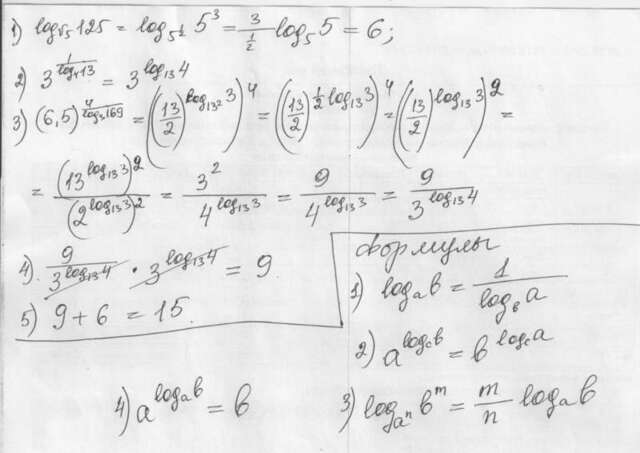 1) log_{√5} 125 = log_{5^{1/2}} 5^3 = 3/(1/2) log_5 5 = 6;
2) 3^{1/log_4 13} = 3^{log_{13} 4}
3) (6,5)^{4/log_3 169} = ((13/2)^{log_{13^2} 3})^4 = ((13/2)^{1/2 log_{13} 3})^4 = ((13/2)^{log_{13} 3})^2 =
= (13^{log_{13} 3})^2/(2^{log_{13} 3})^2 = 3^2/4^{log_{13} 3} = 9/4^{log_{13} 3} = 9/3^{log_{13} 4}
4). 9/3^{log_{13} 4} · 3^{log_{13} 4} = 9.
5) 9 + 6 = 15.
Формулы
1) log_a b = 1/log_b a
2) a^{log_c b} = b^{log_c a}
3) log_{a^n} b^m = m/n log_a b
4) a^{log_a b} = b